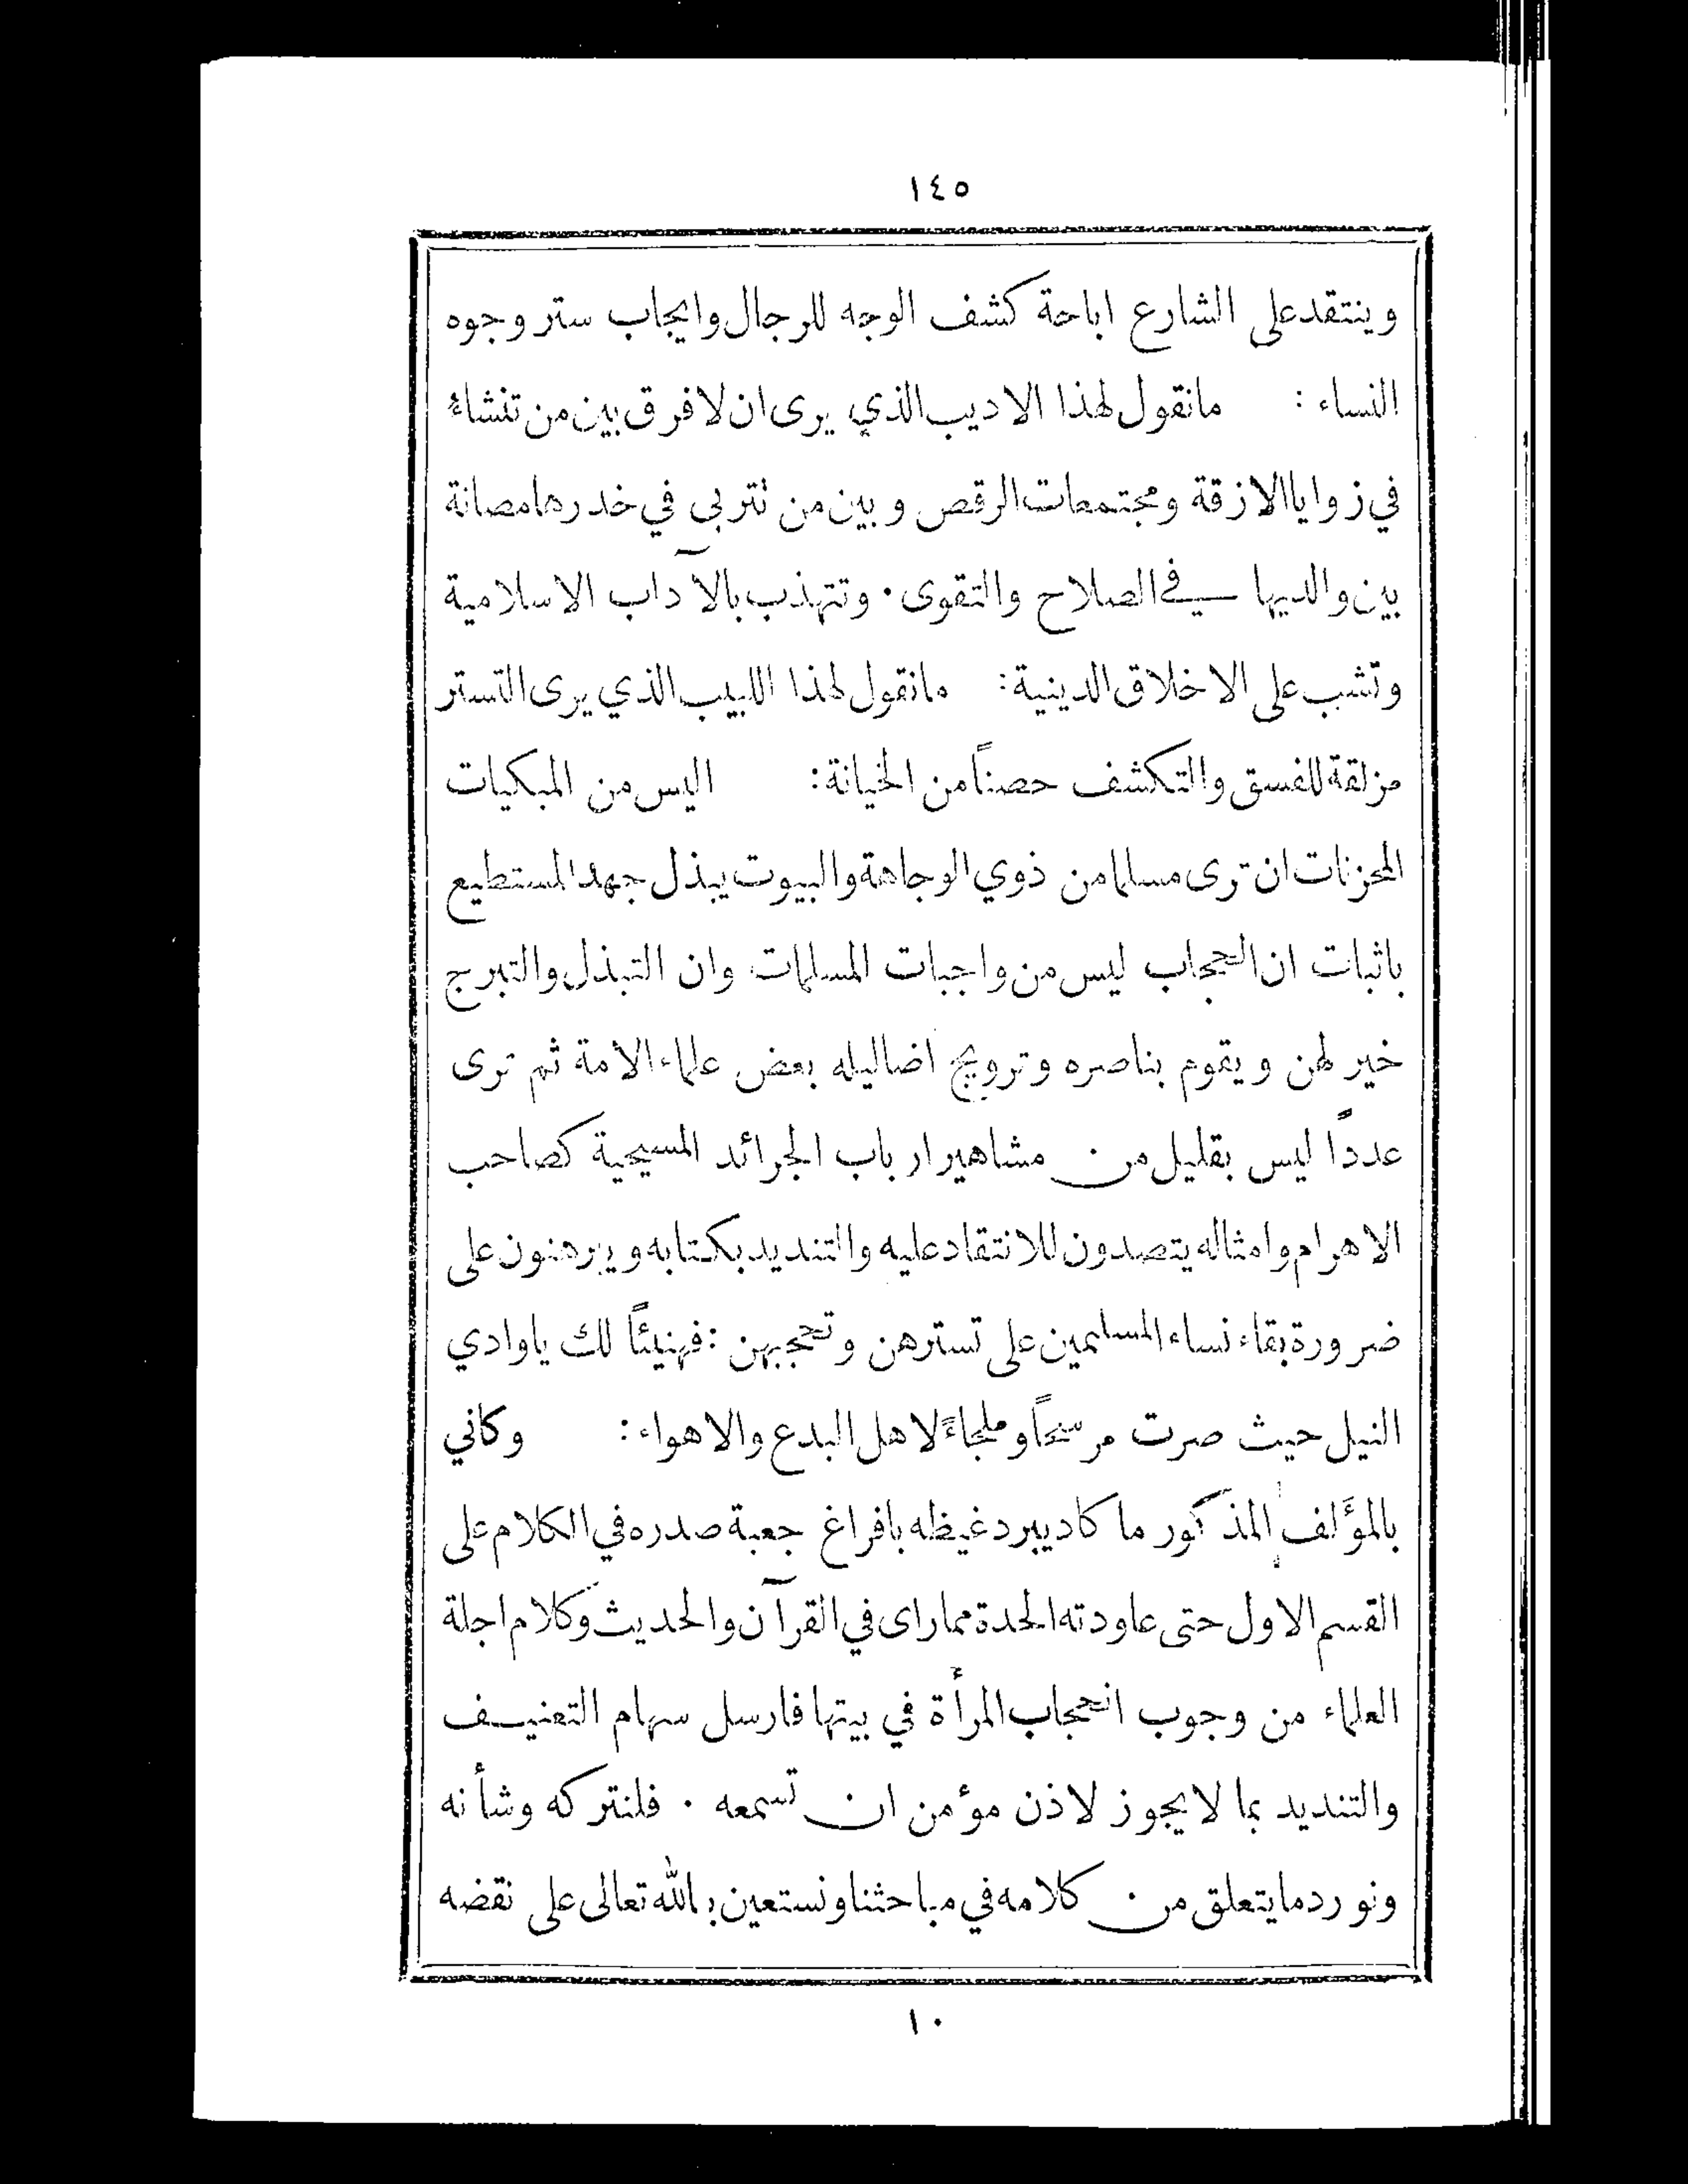 ١٤٥
وينتقد على الشارع اباحة كشف الوجه للرجال وايجاب ستر وجوه
النساء : مانقول لهذا الاديب الذي يرى ان لا فرق بين من تنشاء
في زوايا الازقة ومجتمعات الرقص وبين من نتربى في خدرها مصانة
بين والديها في الصلاح والتقوى . وتتهذب بالآداب الاسلامية
وتشب على الاخلاق الدينية : مانقول لهذا اللبيب الذي يرى التستر
مزلقة للفسق والتكشف حصناً من الخيانة : اليس من المبكيات
المحزنات ان ترى مسلما من ذوي الوجاهة والبيوت يبذل جهد المستطيع
باثبات ان الحجاب ليس من واجبات المسلمات وان التبذل والتبرج
خير لهن ويقوم بناصره وترويج اضاليله بعض علماء الامة ثم ترى
عدداً ليس بقليل من مشاهير ارباب الجرائد المسيحية كصاحب
الاهرام وامثاله يتصدون للانتقاد عليه والتنديد بكتابه ويبرهنون على
ضرورة بقاء نساء المسلمين على تسترهن وتحجبهن : فهنيئاً لك ياوادي
النيل حيث صرت مرسحاً وملجاءً لاهل البدع والاهواء : وكاني
بالمؤلف المذكور ما كاد يبرد غيظه بافراغ جعبة صدره في الكلام على
القسم الاول حتى عاودته الحدة مما راى في القرآن والحديث وكلام اجلة
العلماء من وجوب انحجاب المرأة في بيتها فارسل سهام التعنيف
والتنديد بما لا يجوز لاذن مؤمن ان تسمعه . فلنتركه وشأنه
ونورد ما يتعلق من كلامه في مباحثنا ونستعين بالله تعالى على نقضه
١٠